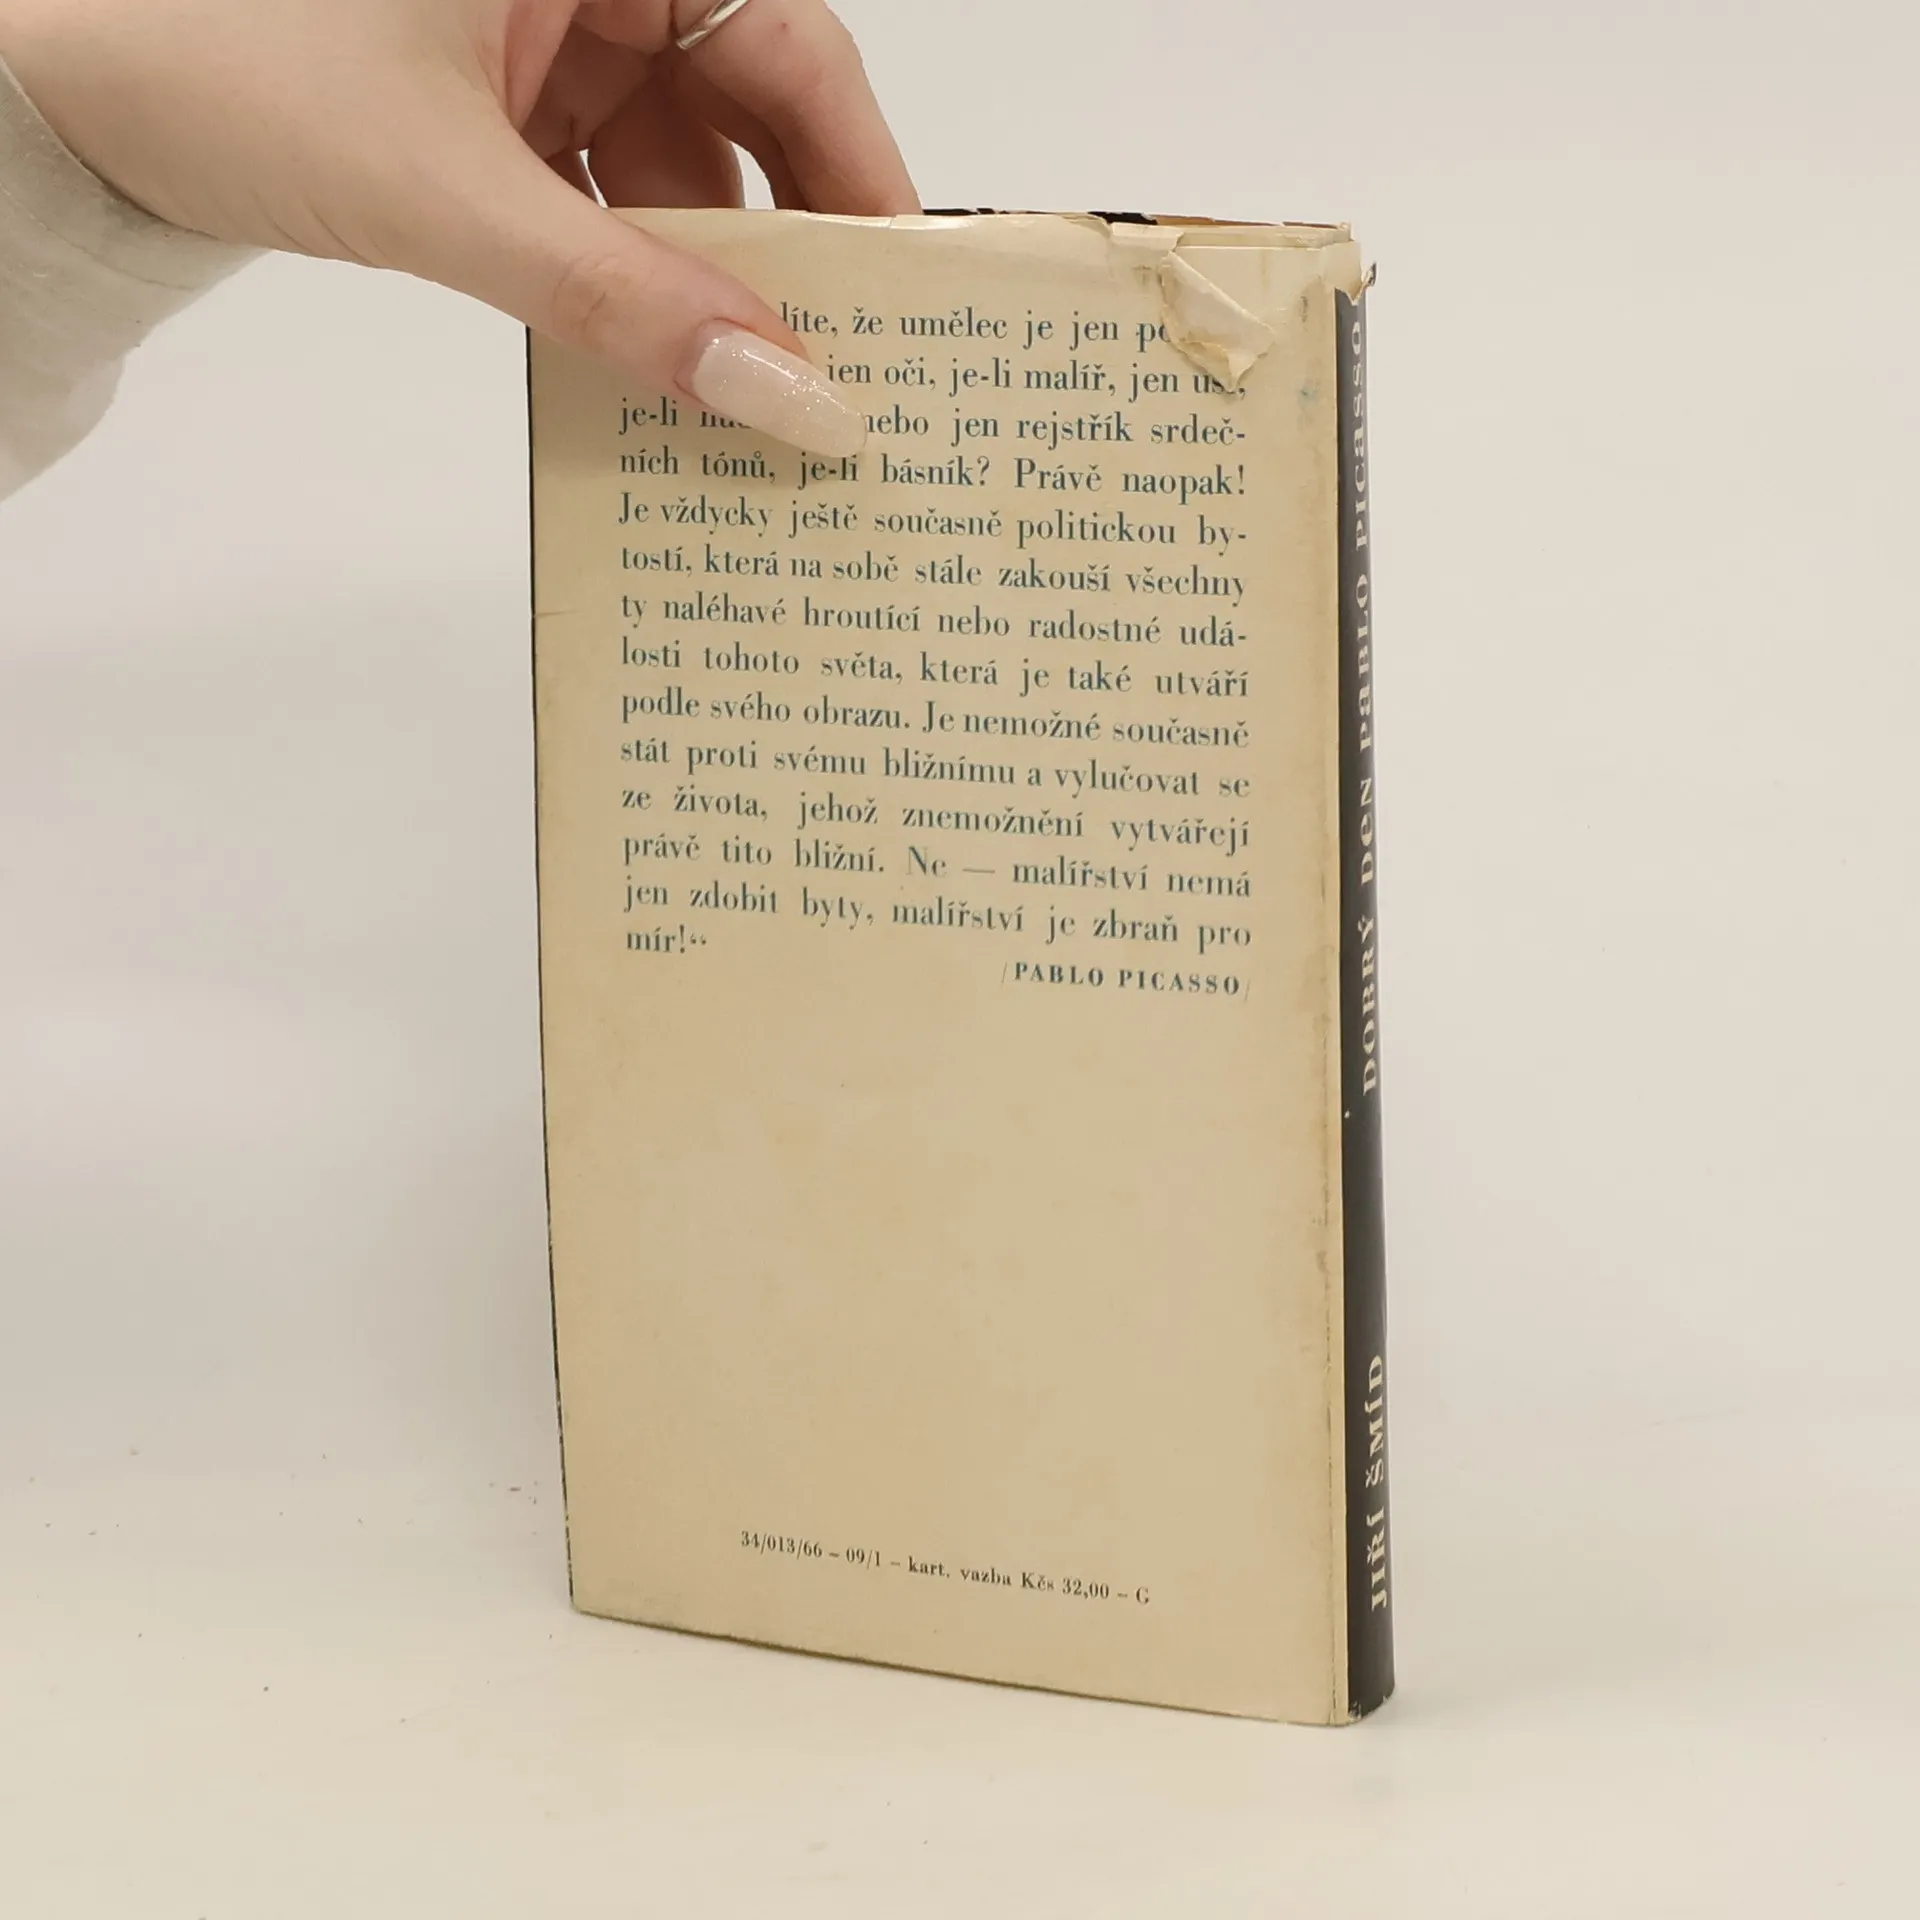 že umělec je jen
jen oči, je-li malíř, jen
je-li nebo jen rejstřík srdeč-
ních tónů, je-li básník? Právě naopak!
Je vždycky ještě současně politickou by-
tostí, která na sobě stále zakouší všechny
ty naléhavé hroutící nebo radostné udá-
losti tohoto světa, která je také utváří
podle svého obrazu. Je nemožné současně
stát proti svému bližnímu a vylučovat se
ze života, jehož znemožnění vytvářejí
právě tito bližní. Ne — malířství nemá
jen zdobit byty, malířství je zbraň pro
mír!“
/PABLO PICASSO/
34/013/66 – 09/1 – kart. vazba Kčs 32,00 – G
JIŘÍ ŠMÍD DOBRÝ DEN PABLO PICASSO